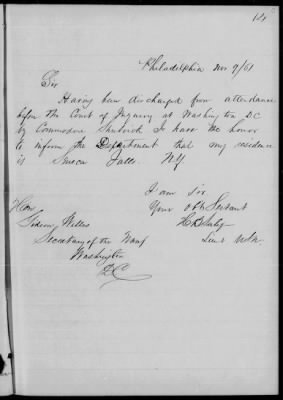 14
Philadelphia Nov 9/61
Sir
Having been discharged from attendance
before the Court of Inquiry at Washington DC
by Commodore Shubrick I have the honor
to inform the Department that my residence
is Seneca Falls NY
I am Sir
Your Obt Servant
Lieut USN.
Hon
Gideon Welles
Secretary of the Navy
Washington
DC